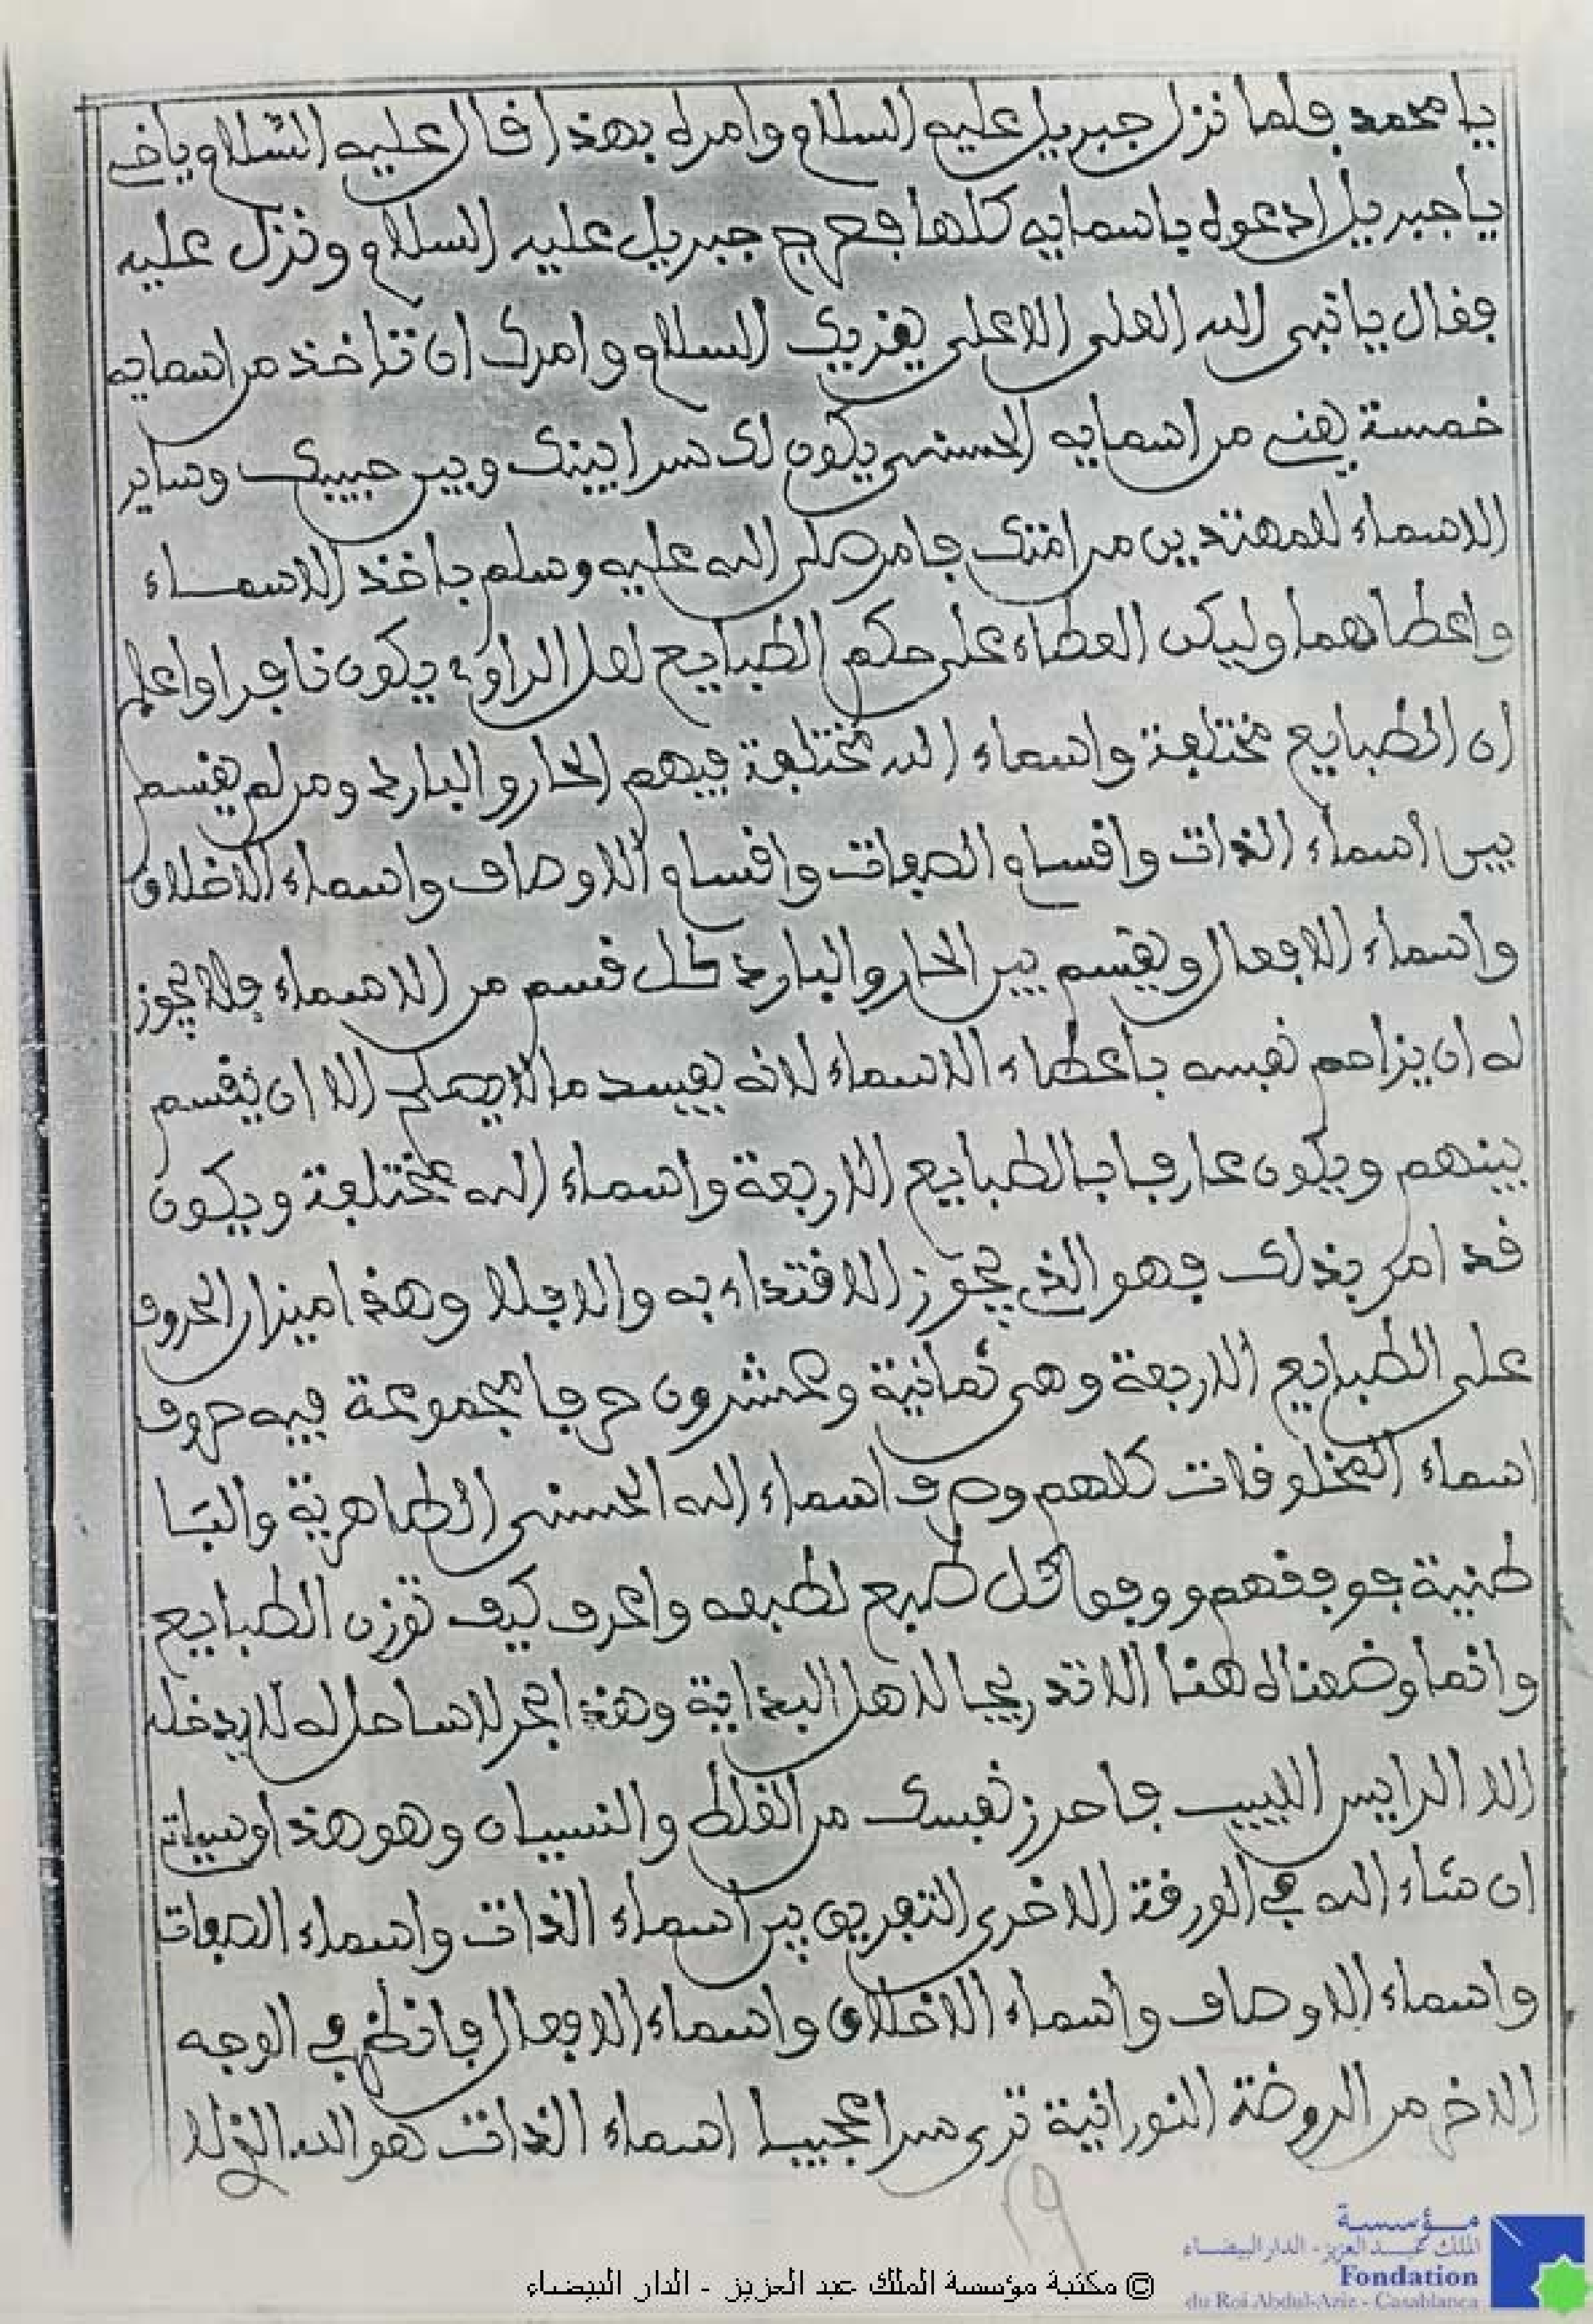 يا محمد فلما نزل جبريل عليه السلام وامره بهذا قال عليه السلام ياخي
يا جبريل ادعوه باسمايه كلها فعرج جبريل عليه السلام ونزل عليه
فقال يا نبي الله العلي الاعلى يقريك السلام وامرك ان تاخذ من اسمايه
خمسة يعني من اسمايه الحسنى يكون لك سرا بينك وبين حبيبك وساير
الاسماء للمهتدين من امتك فامر صلى الله عليه وسلم باخذ الاسماء
واعطاهما وليكن العطاء على حكم الطبايع لعل الراوي يكون نافرا واعلم
ان الطبايع مختلفة واسماء الله مختلفة فيهم الحار والبارد ومن لم يقسم
بين اسماء الذات واقسام الصفات واقسام الاوصاف واسماء الاخلاق
واسماء الافعال ويقسم بين الحار والبارد كل قسم من الاسماء فلا يجوز
له ان يزاحم نفسه باعطاء الاسماء لانه يفسد ما لا يصلح الا ان يقسم
بينهم ويكون عارفا بالطبايع الاربعة واسماء الله مختلفة ويكون
قد امر بذلك فهو الذي يجوز الاقتداء به والا فلا وهذا ميزان الحروف
على الطبايع الاربعة وهي ثمانية وعشرون حرفا مجموعة فيه حروف
اسماء المخلوقات كلهم وحرف اسماء الله الحسنى الظاهرية والبا
طنية فوفقهم ووفق كل طبع لطبعه واعرف كيف توزن الطبايع
وانما وضعناه هنا الا تدريجا لاهل البداية وهذا بحر لا ساحل له لا يدخله
الا الرايس اللبيب فاحرز نفسك من الغلط والنسيان وهو هذا وسياتي
ان شاء الله في الورقة الاخرى التفريق بين اسماء الذات واسماء الصفات
واسماء الاوصاف واسماء الاخلاق واسماء الافعال فانظر في الوجه
الاخر من الروضة النورانية ترى سرا عجيبا اسماء الذات هو الله الذي لا
١٩
© مكتبة مؤسسة الملك عبد العزيز - الدار البيضاء
مؤسسة
الملك عبد العزيز - الدار البيضاء
Fondation
du Roi Abdul-Aziz - Casablanca